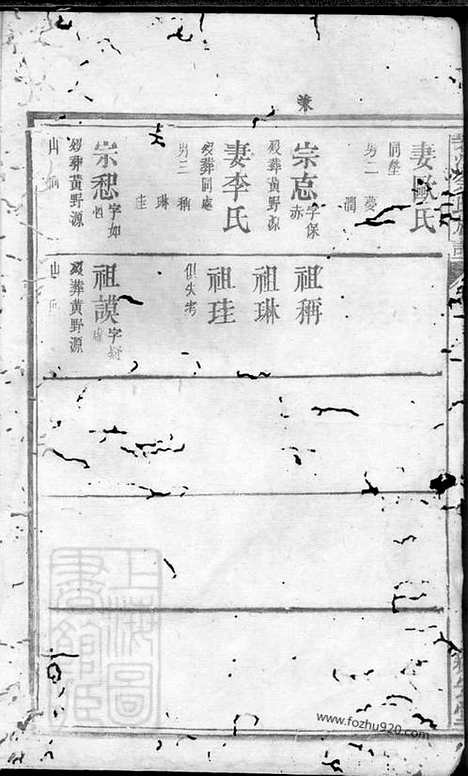 兼
妻歐氏
同塋
男二 憂
潤
宗忘 字保
赤
殁葬黄野源
妻李氏
殁葬同處
男三 稱
琳
珪
宗恕 字如
殁葬黄野源
山
祖稱
祖琳
祖珪
俱失考
祖謨 字
殁葬黄野源
山
上海圖
書館藏
www.fozhu920.com